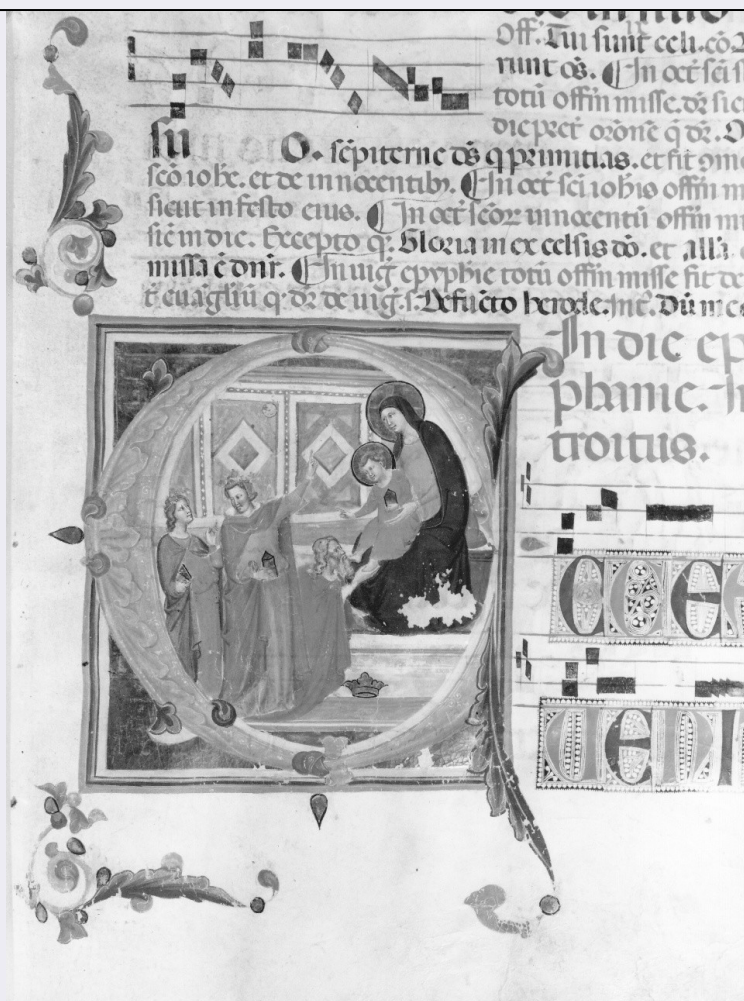 Off. Tui sunt celi. co
runt os. In oct sci s
totū offm misse. dr sic
dic pret orōne q dr. O
su O. sēpiterne ds q primitias. et fit
scō iohe. et de innocentib. In oct sci iohis offm m
sicut in festo eius. In oct scōr innocentū offm m
sic in die. Excepto q. Gloria in excelsis dō. et alla.
missa ē dnr. In uig epyphie totū offm misse fit de
t euāgliū q dr de uig. s. Defucto herode. Int. Dū me
In die ep
phanie. In
troitus.
CCE
UENI